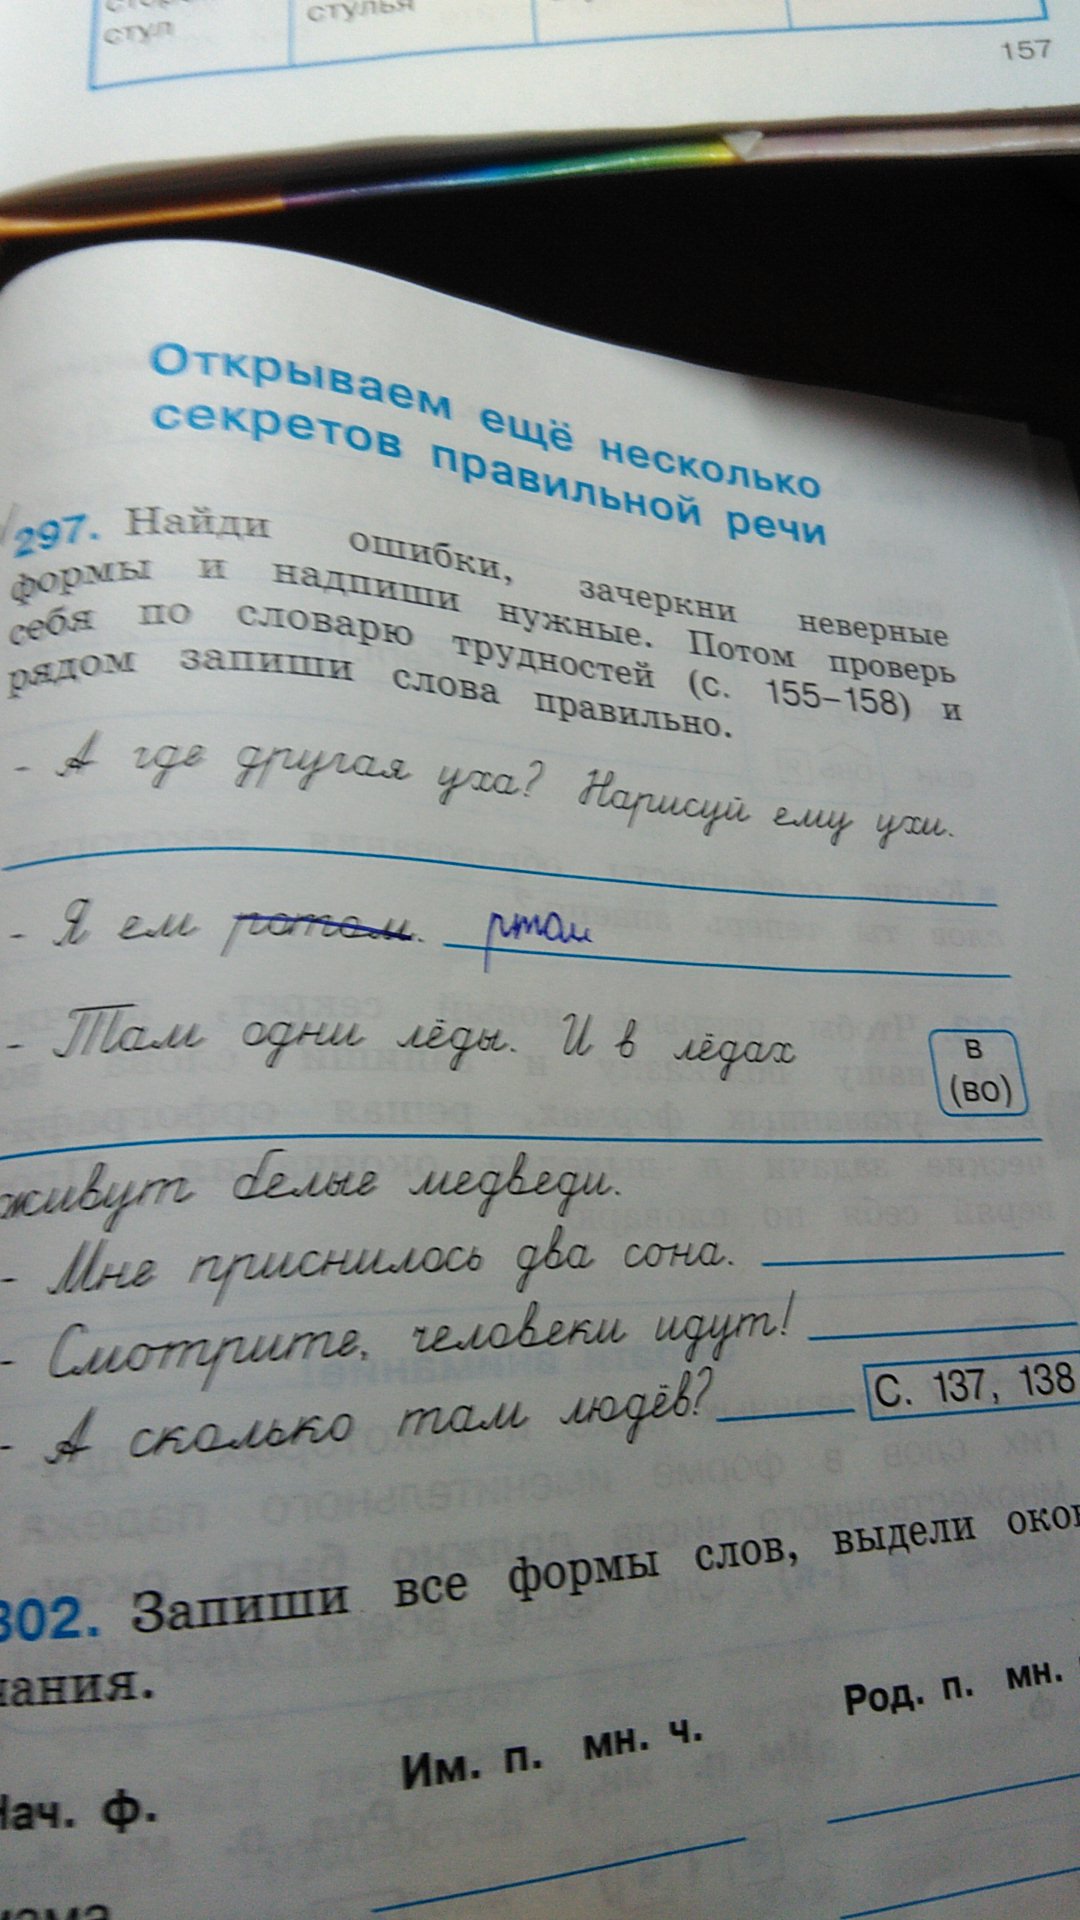 стул
стулья
157
Открываем ещё несколько
секретов правильной речи
297. Найди ошибки, зачеркни неверные
формы и надпиши нужные. Потом проверь
себя по словарю трудностей (с. 155–158) и
рядом запиши слова правильно.
- А где другая уха? Нарисуй ему ухи.
- Я ем ротом. ртом
- Там одни лёды. И в лёдах
в
(во)
живут белые медведи.
- Мне приснилось два сона.
- Смотрите, человеки идут!
- А сколько там людёв? С. 137, 138
302. Запиши все формы слов, выдели окон
чания.
Нач. ф. Им. п. мн. ч. Род. п. мн.